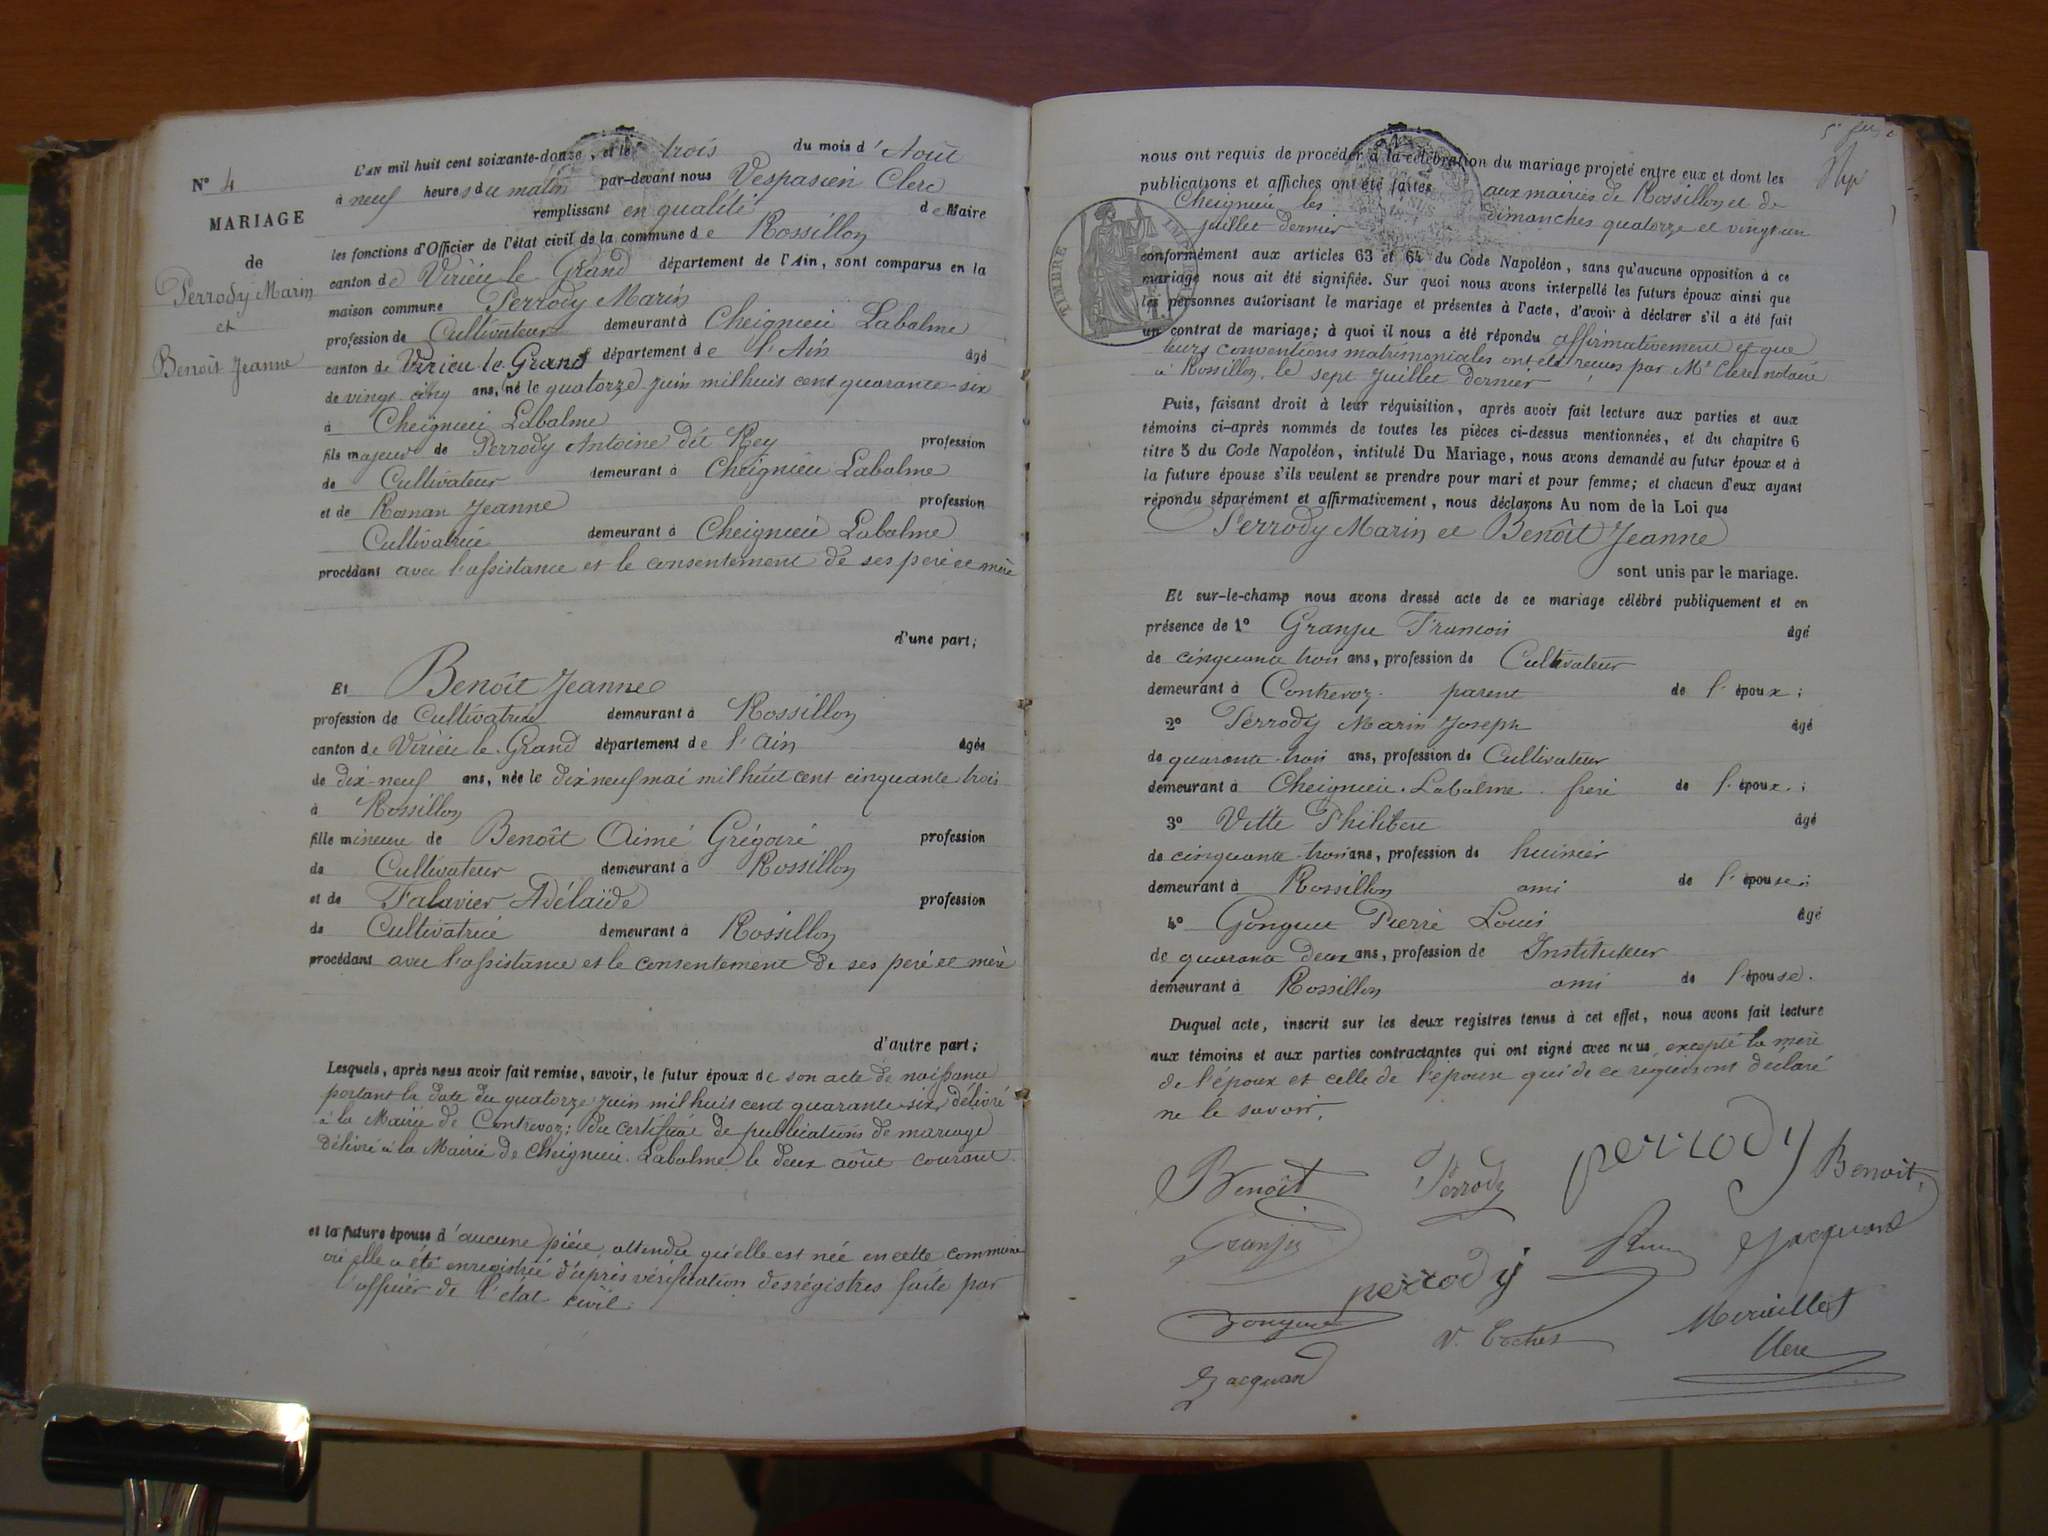 N° 4
MARIAGE
de
Perrody Marin
et
Benoît Jeanne
L'AN mil huit cent soixante-douze, et le trois du mois d'Août
à neuf heures du matin par-devant nous Vespasien Clerc
remplissant en qualité de Maire
les fonctions d'Officier de l'état civil de la commune de Rossillon
canton de Virieu le Grand département de l'Ain, sont comparus en la
maison commune Perrody Marin
profession de Cultivateur demeurant à Cheignieu Labalme
canton de Virieu le Grand département de l'Ain âgé
de vingt cinq ans, né le quatorze juin mil huit cent quarante-six
à Cheignieu Labalme
fils majeur de Perrody Antoine dit Rey profession
de Cultivateur demeurant à Cheignieu Labalme
et de Roman Jeanne profession
Cultivatrice demeurant à Cheignieu Labalme
procédant avec l'assistance et le consentement de ses père et mère
d'une part;
Et Benoît Jeanne
profession de Cultivatrice demeurant à Rossillon
canton de Virieu le Grand département de l'Ain âgée
de dix-neuf ans, née le dix neuf mai mil huit cent cinquante trois
à Rossillon
fille mineure de Benoît Aimé Grégoire profession
de Cultivateur demeurant à Rossillon
et de Falavier Adélaïde profession
de Cultivatrice demeurant à Rossillon
procédant avec l'assistance et le consentement de ses père et mère
d'autre part;
Lesquels, après nous avoir fait remise, savoir, le futur époux de son acte de naissance
portant la date du quatorze juin mil huit cent quarante-six, délivré
à la Mairie de Contrevoz; du certificat de publications de mariage
délivré à la Mairie de Cheignieu Labalme le deux août courant
et la future épouse d'aucune pièce, attendu qu'elle est née en cette commune
où elle a été enregistrée d'après vérification des régistres faite par
l'officier de l'état civil.
nous ont requis de procéder à la célébration du mariage projeté entre eux et dont les
publications et affiches ont été faites aux mairies de Rossillon et de
Cheignieu les dimanches quatorze et vingt un
juillet dernier
TIMBRE
conformément aux articles 63 et 64 du Code Napoléon, sans qu'aucune opposition à ce
mariage nous ait été signifiée. Sur quoi nous avons interpellé les futurs époux ainsi que
les personnes autorisant le mariage et présentes à l'acte, d'avoir à déclarer s'il a été fait
un contrat de mariage; à quoi il nous a été répondu affirmativement et que
leurs conventions matrimoniales ont été reçues par Me Clerc notaire
à Rossillon, le sept Juillet dernier
Puis, faisant droit à leur réquisition, après avoir fait lecture aux parties et aux
témoins ci-après nommés de toutes les pièces ci-dessus mentionnées, et du chapitre 6
titre 5 du Code Napoléon, intitulé Du Mariage, nous avons demandé au futur époux et à
la future épouse s'ils veulent se prendre pour mari et pour femme; et chacun d'eux ayant
répondu séparément et affirmativement, nous déclarons Au nom de la Loi que
Perrody Marin et Benoît Jeanne
sont unis par le mariage.
Et sur-le-champ nous avons dressé acte de ce mariage célébré publiquement et en
présence de 1° François âgé
de cinquante trois ans, profession de Cultivateur
demeurant à Contrevoz parent de l'époux;
2° Perrody Marin Joseph âgé
de quarante-trois ans, profession de Cultivateur
demeurant à Cheignieu-Labalme frère de l'époux;
3° Vitte Philibert âgé
de cinquante-trois ans, profession de huissier
demeurant à Rossillon ami de l'épouse;
4° Gonguet Pierre Louis âgé
de quarante deux ans, profession de Instituteur
demeurant à Rossillon ami de l'épouse.
Duquel acte, inscrit sur les deux registres tenus à cet effet, nous avons fait lecture
aux témoins et aux parties contractantes qui ont signé avec nous, excepté la mère
de l'époux et celle de l'épouse qui de ce requises ont déclaré
ne le savoir.
Benoît Perrody perrody Benoit
Jacquand
perrody
V. Cochet
Clerc
Jacquand